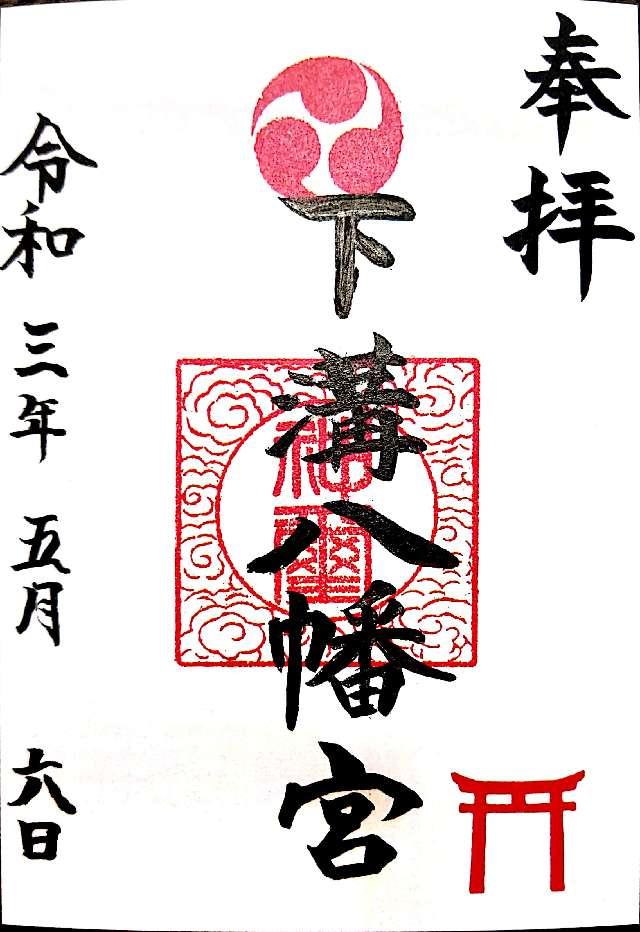 奉拝
下溝八幡宮
神璽
令和三年五月六日